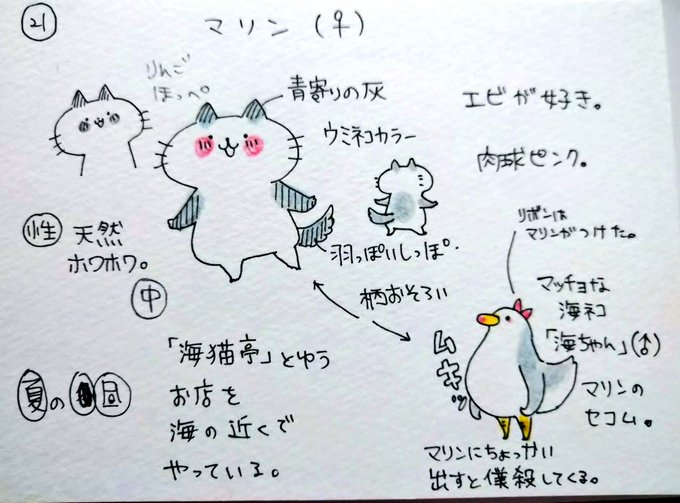 21
マリン(♀)
りんご
ほっぺ。
青寄りの灰
ウミネコカラー
エビが好き。
肉球ピンク。
性 天然
ホワホワ。
羽っぽいしっぽ.
中
柄おそろい
リボンは
マリンがつけた。
マッチョな
海ネコ
「海ちゃん」(♂)
ムキッ
マリンの
セコム。
マリンにちょっかい
出すと僕殺してくる。
夏の 昼
「海猫亭」とゆう
お店を
海の近くで
やっている。